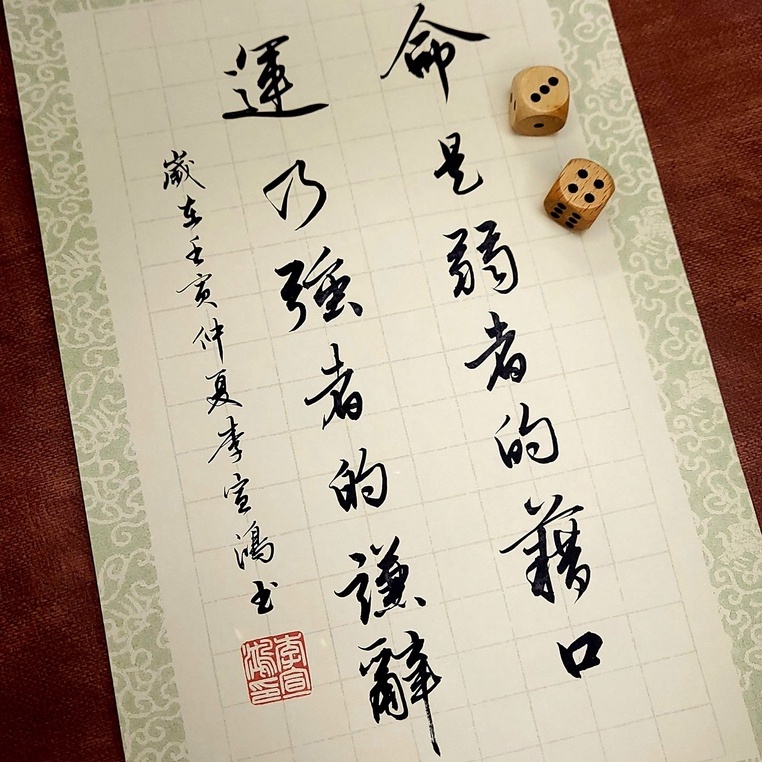 命是弱者的藉口
運乃強者的謙辭
歲在壬寅仲夏李宣鴻书
李宣鴻印